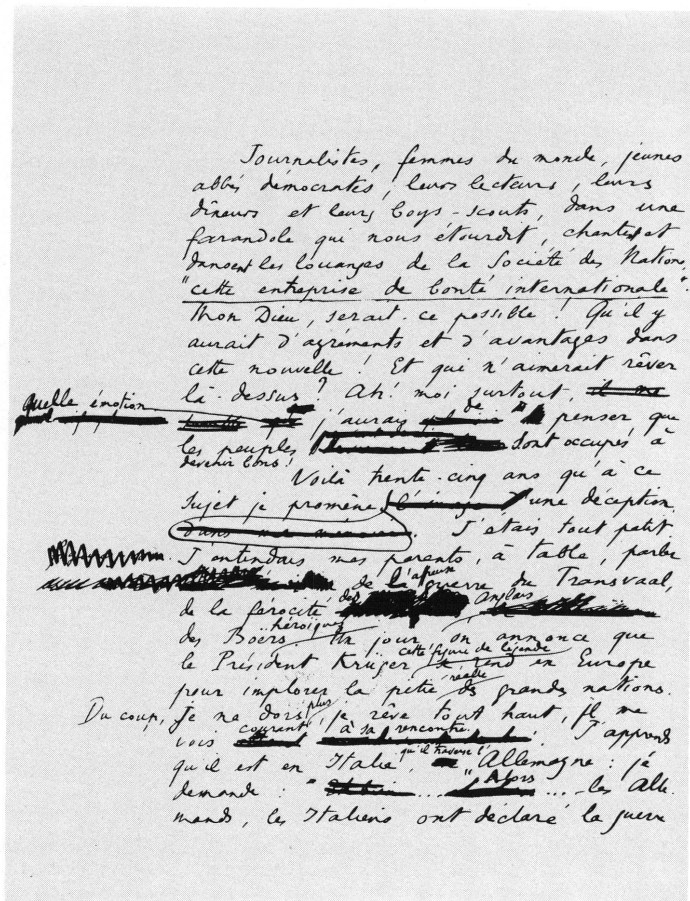 Journalistes, femmes du monde, jeunes
abbés démocrates, leurs lecteurs, leurs
dîneurs et leurs boys-scouts, dans une
farandole qui nous étourdit, chantent et
dansent les louanges de la Société des Nations,
"cette entreprise de bonté internationale".
Mon Dieu, serait-ce possible ! Qu'il y
aurait d'agréments et d'avantages dans
cette nouvelle ! Et que n'aimerait rêver
là-dessus ? Ah! moi surtout,
quelle émotion j'aurais de penser que
les peuples sont occupés à
devenir bons !
Voilà trente-cinq ans qu'à ce
sujet je promène une déception.
J'étais tout petit
J'entendais mes parents, à table, parler
de l'affreuse guerre du Transvaal,
de la férocité des anglais
des Boërs héroïques. Un jour on annonce que
le Président Krüger cette figure de légende se rend en Europe
pour implorer la pitié réelle des grandes nations.
Du coup, je ne dors plus, je rêve tout haut, je me
vois courant à sa rencontre. J'apprends
qu'il est en Italie, qu'il traverse l'Allemagne : je
demande : "Alors ... les Alle-
mands, les Italiens ont déclaré la guerre